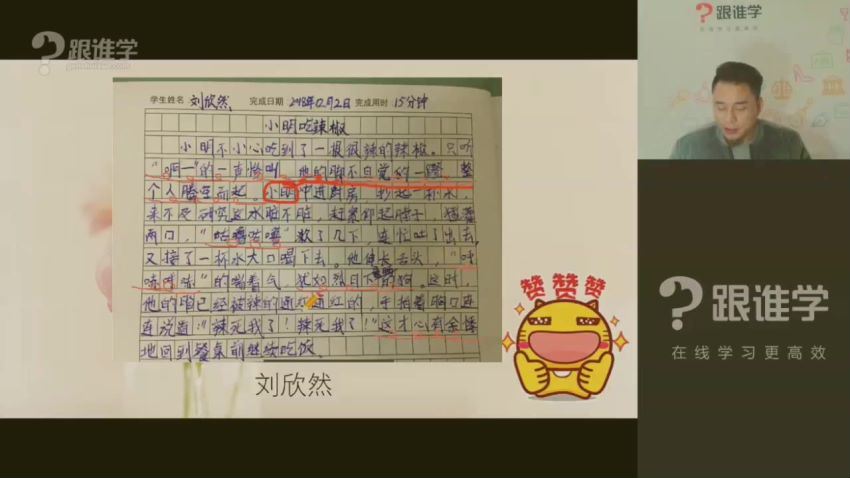 跟谁学
genshuixue.com
学生姓名 刘欣然 完成日期 2018年12月2日 完成用时 15分钟
小明吃辣椒
小明不小心吃到了一根很辣的辣椒。只听
“啊一”的一声惨叫，他的脚不自觉的一蹬，整
个人腾空而起。小明冲进厨房，抄起一杯水，
来不及研究这水脏不脏，赶紧仰起脖子，猛灌
两口，“咕噜咕噜”漱了几下，连忙吐了出去，
又接了一杯水大口喝下去。他伸长舌头，“呼
哧呼哧”的喘着气，犹如烈日下的狗。这时，
他的脸已经被辣的通红通红的，手拍着胸口连
连说着：“辣死我了！辣死我了！”这才心有余悸
地回到餐桌前继续吃饭。
刘欣然
赞赞赞
跟谁学
在线学习更高效
跟谁学
在线学习更高效